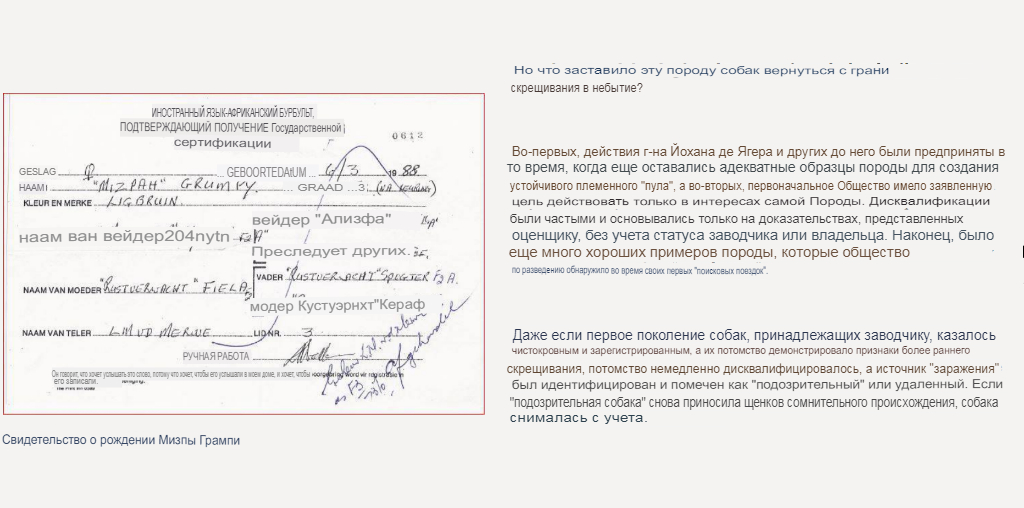 ИНОСТРАННЫЙ ЯЗЫК-АФРИКАНСКИЙ БУРБУЛЬТ,
ПОДТВЕРЖДАЮЩИЙ ПОЛУЧЕНИЕ Государственной
сертификации
0612
GESLAG ♀ GEBOORTEDATUM 6/3 1988
HAAM I "MIZPAH" GRUMPY. GRAAD 3.
KLEUR EN MERKE LIGBRUIN.
вейдер "Ализфа"
наам ван вейдер204nytn
Преследует других.
NAAM VAN MOEDER "RUSTVERWACHT" FIELA
VADER "RUSTVERWACHT" SPOGTER F2A.
модер Кустуэрнхт"Кераф
NAAM VAN TELER LIM VD MERWE LID NR. 3
РУЧНАЯ РАБОТА
Он говорит, что хочет услышать это слово, потому что хочет, чтобы его услышали в моем доме, и хочет, чтобы
его записали.
Свидетельство о рождении Мизпы Грампи
Но что заставило эту породу собак вернуться с грани
скрещивания в небытие?
Во-первых, действия г-на Йохана де Ягера и других до него были предприняты в
то время, когда еще оставались адекватные образцы породы для создания
устойчивого племенного "пула", а во-вторых, первоначальное Общество имело заявленную
цель действовать только в интересах самой Породы. Дисквалификации
были частыми и основывались только на доказательствах, представленных
оценщику, без учета статуса заводчика или владельца. Наконец, было
еще много хороших примеров породы, которые общество
по разведению обнаружило во время своих первых "поисковых поездок".
Даже если первое поколение собак, принадлежащих заводчику, казалось
чистокровным и зарегистрированным, а их потомство демонстрировало признаки более раннего
скрещивания, потомство немедленно дисквалифицировалось, а источник "заражения"
был идентифицирован и помечен как "подозрительный" или удаленный. Если
"подозрительная собака" снова приносила щенков сомнительного происхождения, собака
снималась с учета.